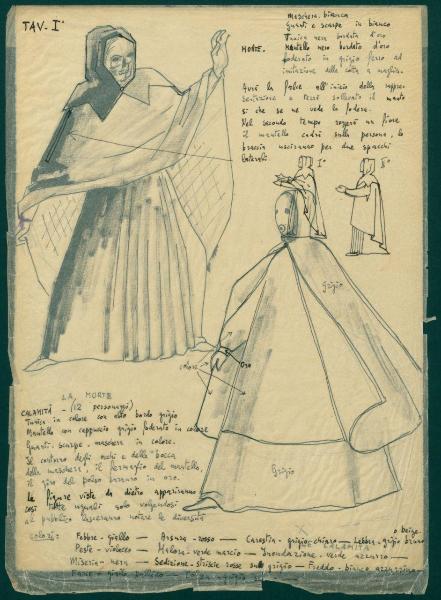 TAV. I°
Maschera bianca
Guanti e scarpe in bianco
Tunica nera bordata d'oro
MORTE. Mantello nero bordato d'oro
foderato in grigio ferro ad
imitazione della cotta a maglia.
Avrà la falce all'inizio della rappre-
sentazione e terrà sollevato il manto
sì che se ne veda la fodera.
Nel secondo tempo reggerà un fiore
il mantello cadrà sulla persona, le
braccia usciranno per due spacchi
laterali.
I° II°
Grigio
colore
Oro
Grigio
LA MORTE
CALAMITÀ - (12 personaggi)
Tunica in colore con alto bordo grigio
Mantello con cappuccio grigio foderato in colore
Guanti - scarpe - maschera in colore.
Il contorno degli occhi e della bocca
della maschera, il fermaglio del mantello,
il giro del polso saranno in oro.
Le figure viste da dietro appariranno
così tutte uguali solo volgendosi
al pubblico lasceranno notare le diversità
o beige
Colori: Febbre - giallo — Arsura - rosso — Carestia - grigio chiaro — Lebbra - grigio bruno
LE CALAMITÀ
Peste - violaceo — Malora - verde marcio — Inondazione - verde azzurro —
Miseria - nera — Sedizione - striscie rosse sul grigio — Freddo - bianco azzurrino
Fame - giallo pallido —